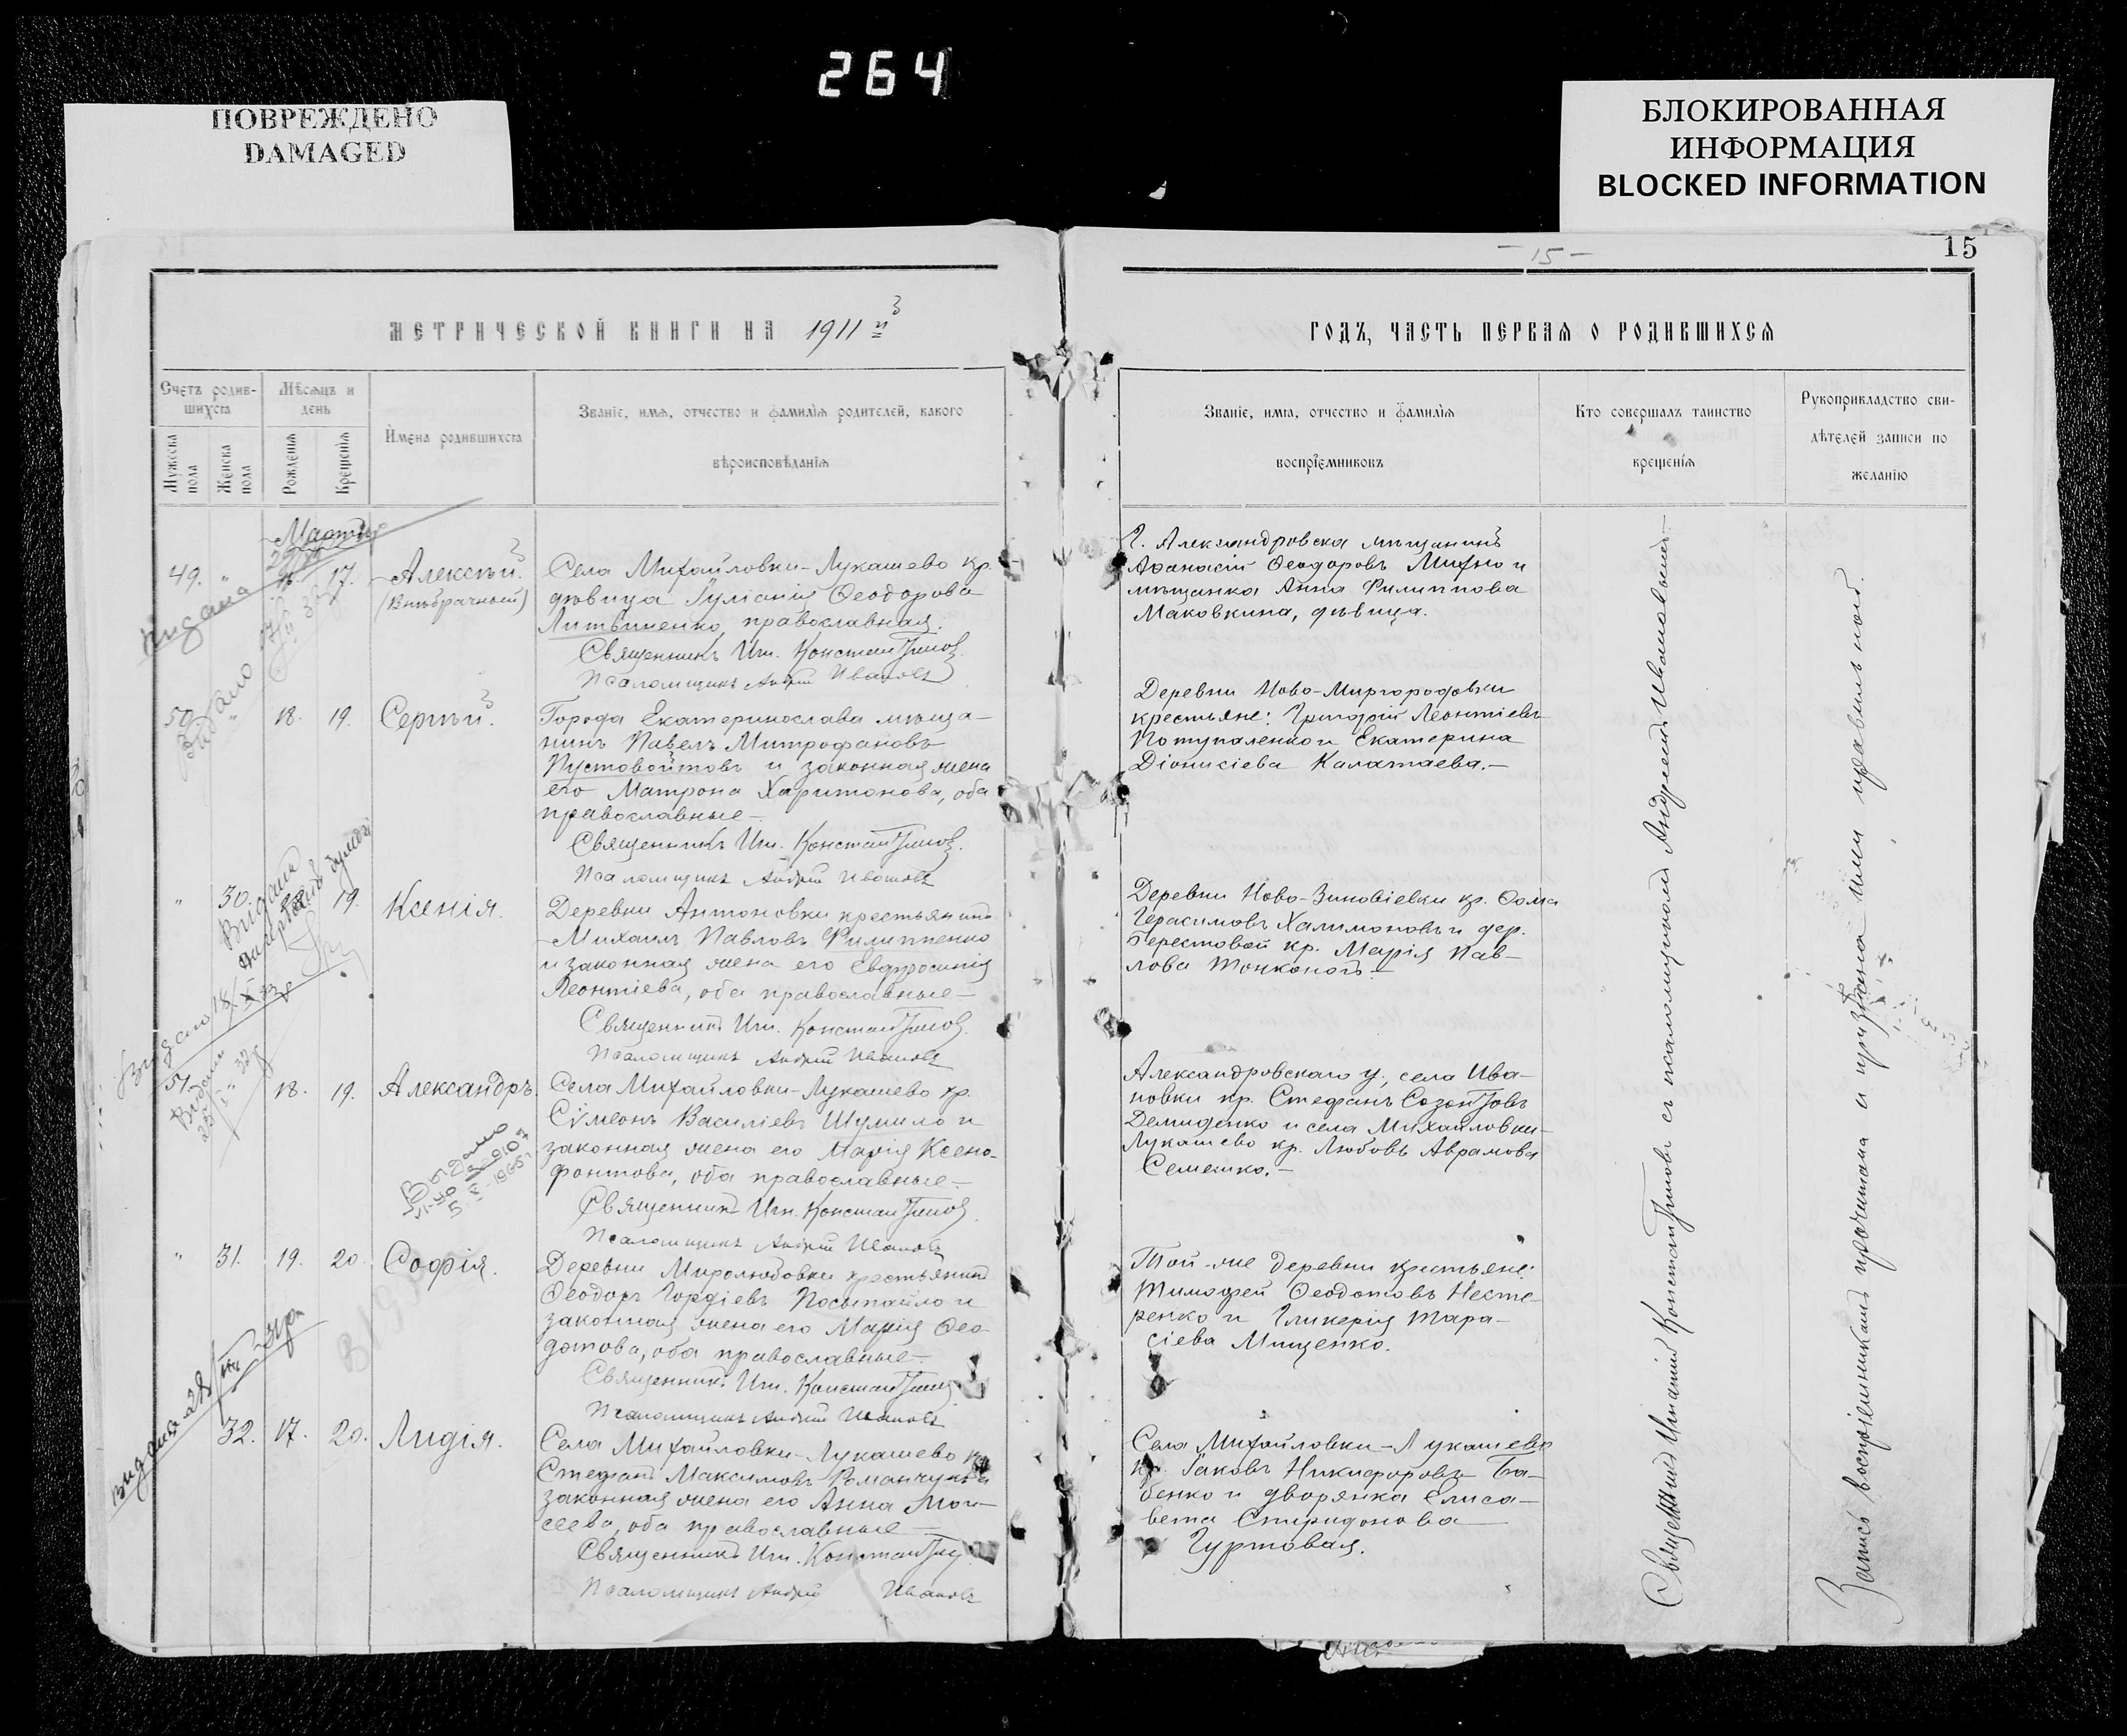 264
ПОВРЕЖДЕНО
DAMAGED
БЛОКИРОВАННАЯ
ИНФОРМАЦИЯ
BLOCKED INFORMATION
МЕТРИЧЕСКОЙ КНИГИ НА 1911й
Счетъ родив-
шихся
Мѣсяцъ и
день
Мужеска
пола
Женска
пола
Рожденія
Крещенія
Имена родившихся
Званіе, имя, отчество и фамилія родителей, какого
вѣроисповѣданія
Марта
49. " 17. Алексѣй.
(Внѣбрачный)
Села Михайловки-Лукашево кр.
дѣвица Іуліанія Ѳеодорова
Литвиненко, православная.
Священникъ Игн. Константиновъ
Псаломщикъ Андрей Ивановъ
50. " 18. 19. Сергѣй.
Города Екатеринослава мѣща-
нинъ Павелъ Митрофановъ
Пустовойтовъ и законная жена
его Матрона Харитонова, оба
православные-
Священникъ Игн. Константиновъ.
Псаломщикъ Андрей Ивановъ
" 30. 19. Ксенія.
Деревни Антоновки крестьянинъ
Михаилъ Павловъ Филиппенко
и законная жена его Евфросинія
Леонтіева, оба православные-
Священникъ Игн. Константиновъ.
Псаломщикъ Андрей Ивановъ
51. 18. 19. Александръ.
Села Михайловки-Лукашево кр.
Сѵмеонъ Василіевъ Шумило и
законная жена его Марія Ксено-
фонтова, оба православные.-
Священникъ Игн. Константиновъ
Псаломщикъ Андрей Ивановъ
" 31. 19. 20. Софія.
Деревни Миролюбовки крестьянинъ
Ѳеодоръ Гордіевъ Посыпайло и
законная жена его Марія Ѳео-
дотова, оба православные-
Священникъ Игн. Константиновъ
Псаломщикъ Андрей Ивановъ
32. 17. 20. Лидія.
Села Михайловки-Лукашево кр.
Стефанъ Максимовъ Романчукъ и
законная жена его Анна Мои-
сеева, оба православные-
Священникъ Игн. Константиновъ
Псаломщикъ Андрей Ивановъ
Видана
Видано
Выдано
5 X-1965
- 15 -
15
ГОДЪ, ЧАСТЬ ПЕРВАЯ О РОДИВШИХСЯ
Званіе, имя, отчество и фамилія
воспріемниковъ
Кто совершалъ таинство
крещенія
Рукоприкладство сви-
дѣтелей записи по
желанію
Г. Александровска мѣщанинъ
Аѳанасій Ѳеодоровъ Михно и
мѣщанка Анна Филиппова
Маковкина, дѣвица.
Деревни Ново-Миргородовки
крестьяне: Григорій Леонтіевъ
Потупаленко и Екатерина
Діонисіева Калатаева.-
Деревни Ново-Зиновіевки кр. Ѳома
Герасимовъ Халимоновъ и дер.
Берестовой кр. Марія Пав-
лова Тонконогъ.-
Александровскаго у., села Ива-
новки кр. Стефанъ Созонтовъ
Демиденко и села Михайловки-
Лукашево кр. Любовь Аврамова
Семешко.-
Той-же деревни крестьяне:
Тимофей Ѳеодотовъ Несте-
ренко и Гликерія Тара-
сіева Мищенко.
Села Михайловки-Лукашево
кр. Іаковъ Никифоровъ Ба-
бенко и дворянка Елиса-
вета Спиридонова
Гуртовая.
Священникъ Игнатій Константиновъ съ псаломщикомъ Андреемъ Ивановымъ-
Запись воспріемникамъ прочитана и признана ими правильной.